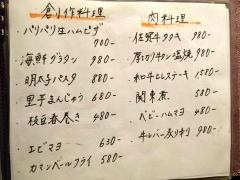 創作料理
・パリパリ生ハムピザ
780-
・海鮮グラタン 980-
・明太子パスタ 880-
・里芋まんじゅう 680-
・枝豆春巻き 480-
・エビマヨ 630-
・カマンベールフライ 580-
肉料理
・佐賀牛タタキ 980-
・厚切り牛タン塩焼 980-
・和牛ヒレステーキ 1580-
・関東煮 580-
・ベビーハムマヨ 480-
・牛レバー炙り 980-